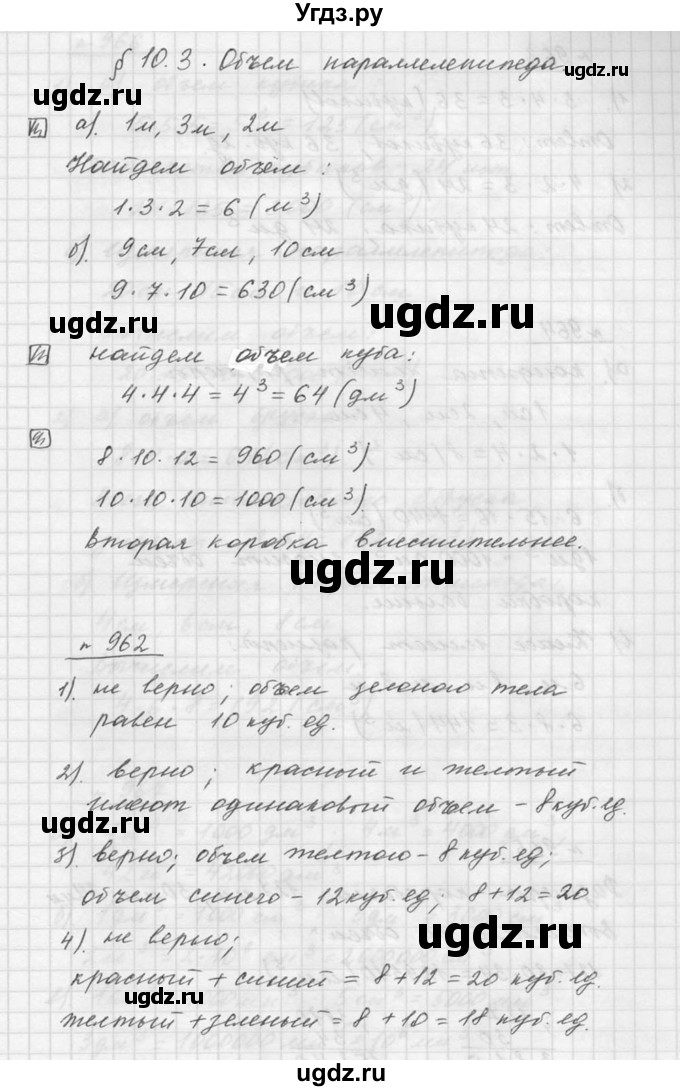 Угдз.ру
§ 10.3. Объем параллелепипеда
ugdz.ru ugdz.ru
а). 1м, 3м, 2м
Найдем объём:
1·3·2 = 6 (м³)
ugdz.ru
б). 9см, 7см, 10см
9·7·10 = 630 (см³)
ugdz.ru
ugdz.ru
найдем объем куба:
4·4·4 = 4³ = 64 (дм³)
8·10·12 = 960 (см³)
ugdz.ru
10·10·10 = 1000 (см³).
Вторая коробка вместительнее.
ugdz.ru
ugdz.ru
n 962
1). не верно; объем зеленого тела
равен 10 куб. ед.
ugdz.ru
2). верно; красный и желтый
имеют одинаковый объем – 8 куб. ед.
ugdz.ru
3). верно; объем желтого – 8 куб. ед;
объем синего – 12 куб. ед; 8+12=20
4). не верно;
ugdz.ru
красный + синий = 8+12 = 20 куб. ед.
ugdz.ru
желтый + зеленый = 8 + 10 = 18 куб. ед.
ugdz.ru